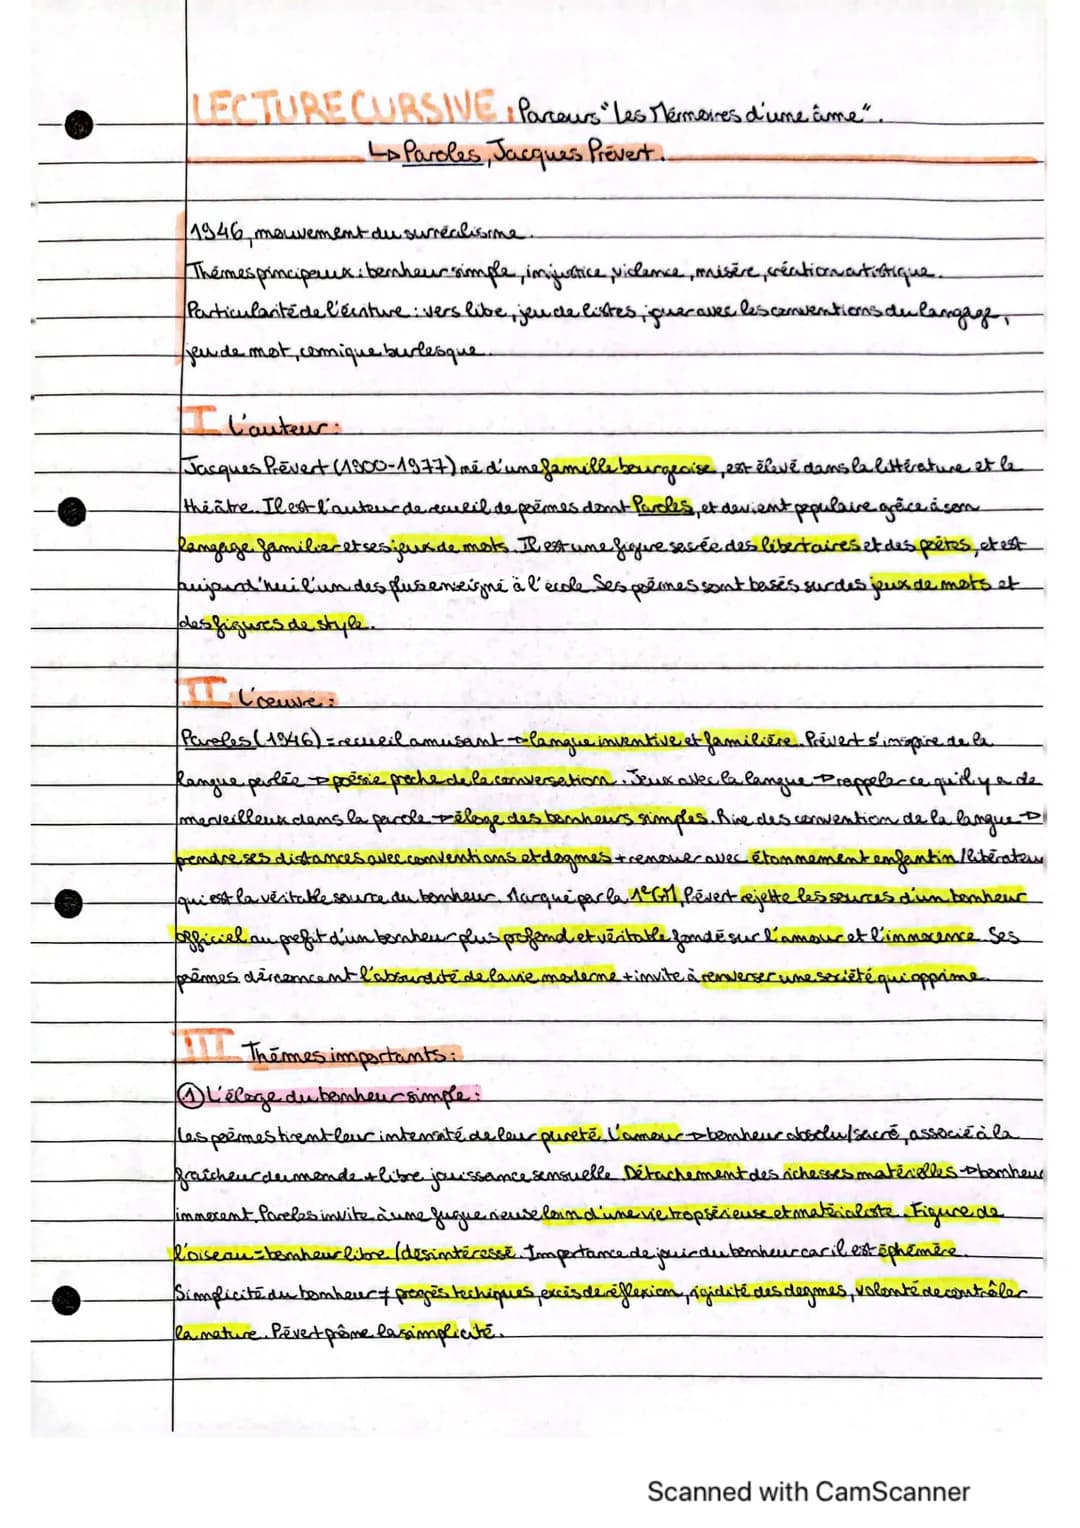 LECTURE CURSIVE : Parcours "Les Mémoires d'une âme".
↳ Paroles, Jacques Prévert.
1946, mouvement du surréalisme.
Thèmes principaux : bonheur simple, injustice, violence, misère, création artistique.
Particularité de l'écriture : vers libe, jeu de listes, jouer avec les conventions du langage,
jeu de mot, comique burlesque.
I L'auteur :
Jacques Prévert (1900-1977) né d'une famille bourgeoise, est élevé dans la littérature et le
théâtre. Il est l'auteur de recueil de poèmes dont Paroles, et devient populaire grâce à son
langage familier et ses jeux de mots. Il est une figure sacrée des libertaires et des poètes, et est
aujourd'hui l'un des plus enseigné à l'école. Ses poèmes sont basés sur des jeux de mots et
des figures de style.
II L'œuvre :
Paroles (1946) = recueil amusant → langue inventive et familière. Prévert s'inspire de la
langue parlée → poésie proche de la conversation. Jeux avec la langue → rappeler ce qu'il y a de
merveilleux dans la parole → éloge des bonheurs simples. Rire des convention de la langue →
prendre ses distances avec conventions et dogmes + renouer avec étonnement enfantin / libérateur
qui est la véritable source du bonheur. Marqué par la 1e GM, Prévert rejette les sources d'un bonheur
officiel au profit d'un bonheur plus profond et véritable fondé sur l'amour et l'innocence. Ses
poèmes dénoncent l'absurdité de la vie moderne + invite à renverser une société qui opprime.
III Thèmes importants :
① L'éloge du bonheur simple :
Les poèmes tirent leur intensité de leur pureté. L'amour → bonheur absolu/sacré, associé à la
fraîcheur du monde + libre jouissance sensuelle. Détachement des richesses matérielles → bonheur
innocent. Paroles invite à une fugue rieuse loin d'une vie trop sérieuse et matérialiste. Figure de
l'oiseau = bonheur libre / désintéressé. Importance de jouir du bonheur car il est éphémère.
Simplicité du bonheur ≠ progès techiques, excès de réflexion, rigidité des dogmes, volonté de contrôler
la nature. Prévert prône la simplicité.
Scanned with CamScanner